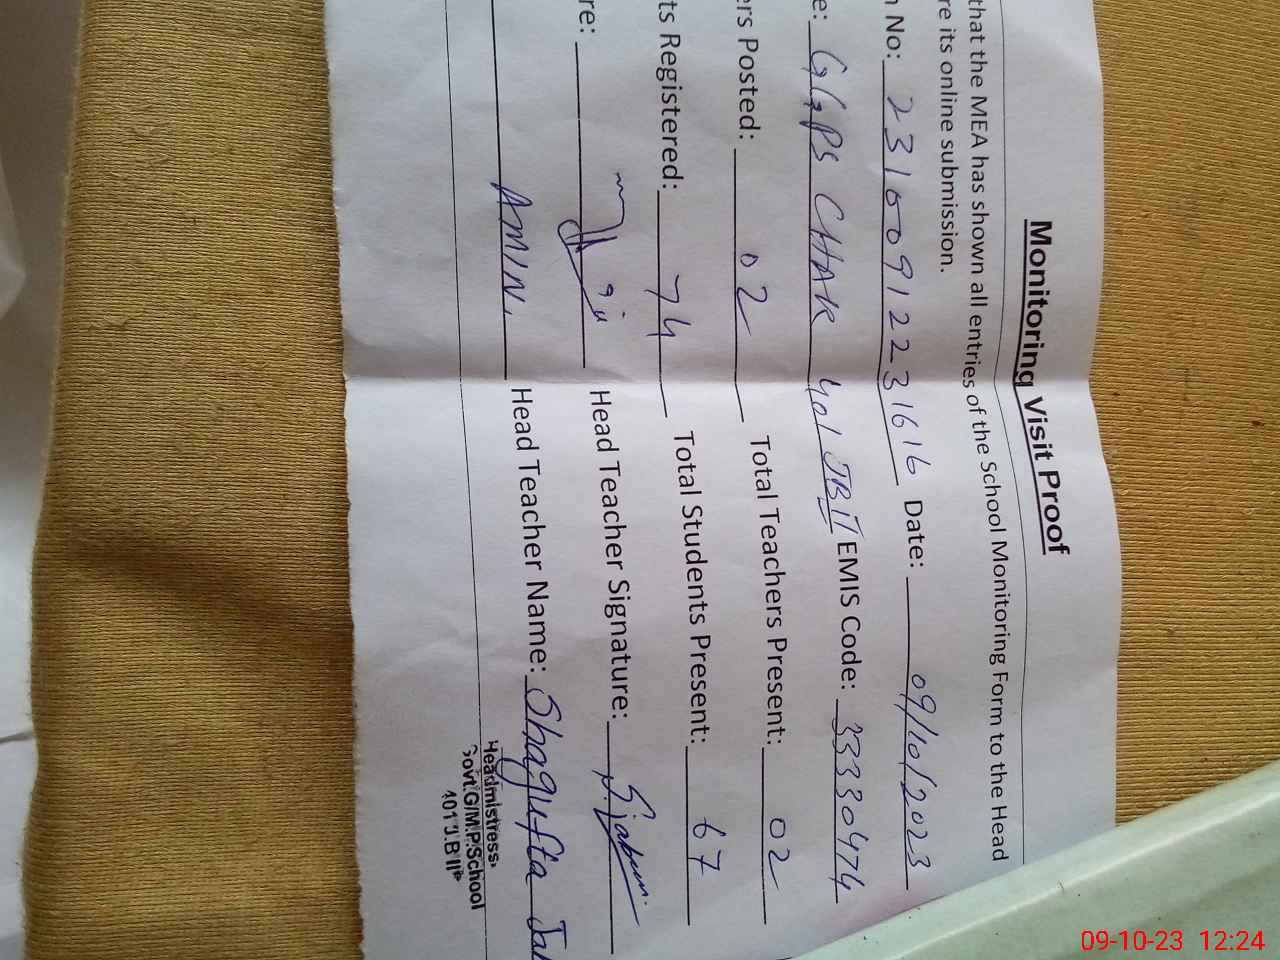 Monitoring Visit Proof
that the MEA has shown all entries of the School Monitoring Form to the Head
re its online submission.
No: 2316091223 1616 Date: 09/10/2023
e: GGPS CHAK 401 JB II EMIS Code: 33330474
ers Posted: 02 Total Teachers Present: 02
ts Registered: 74 Total Students Present: 67
re: Head Teacher Signature:
AMIN. Head Teacher Name: Shagufta
Headmistress
Govt.G/M.P.School
401 J.B II
09-10-23 12:24